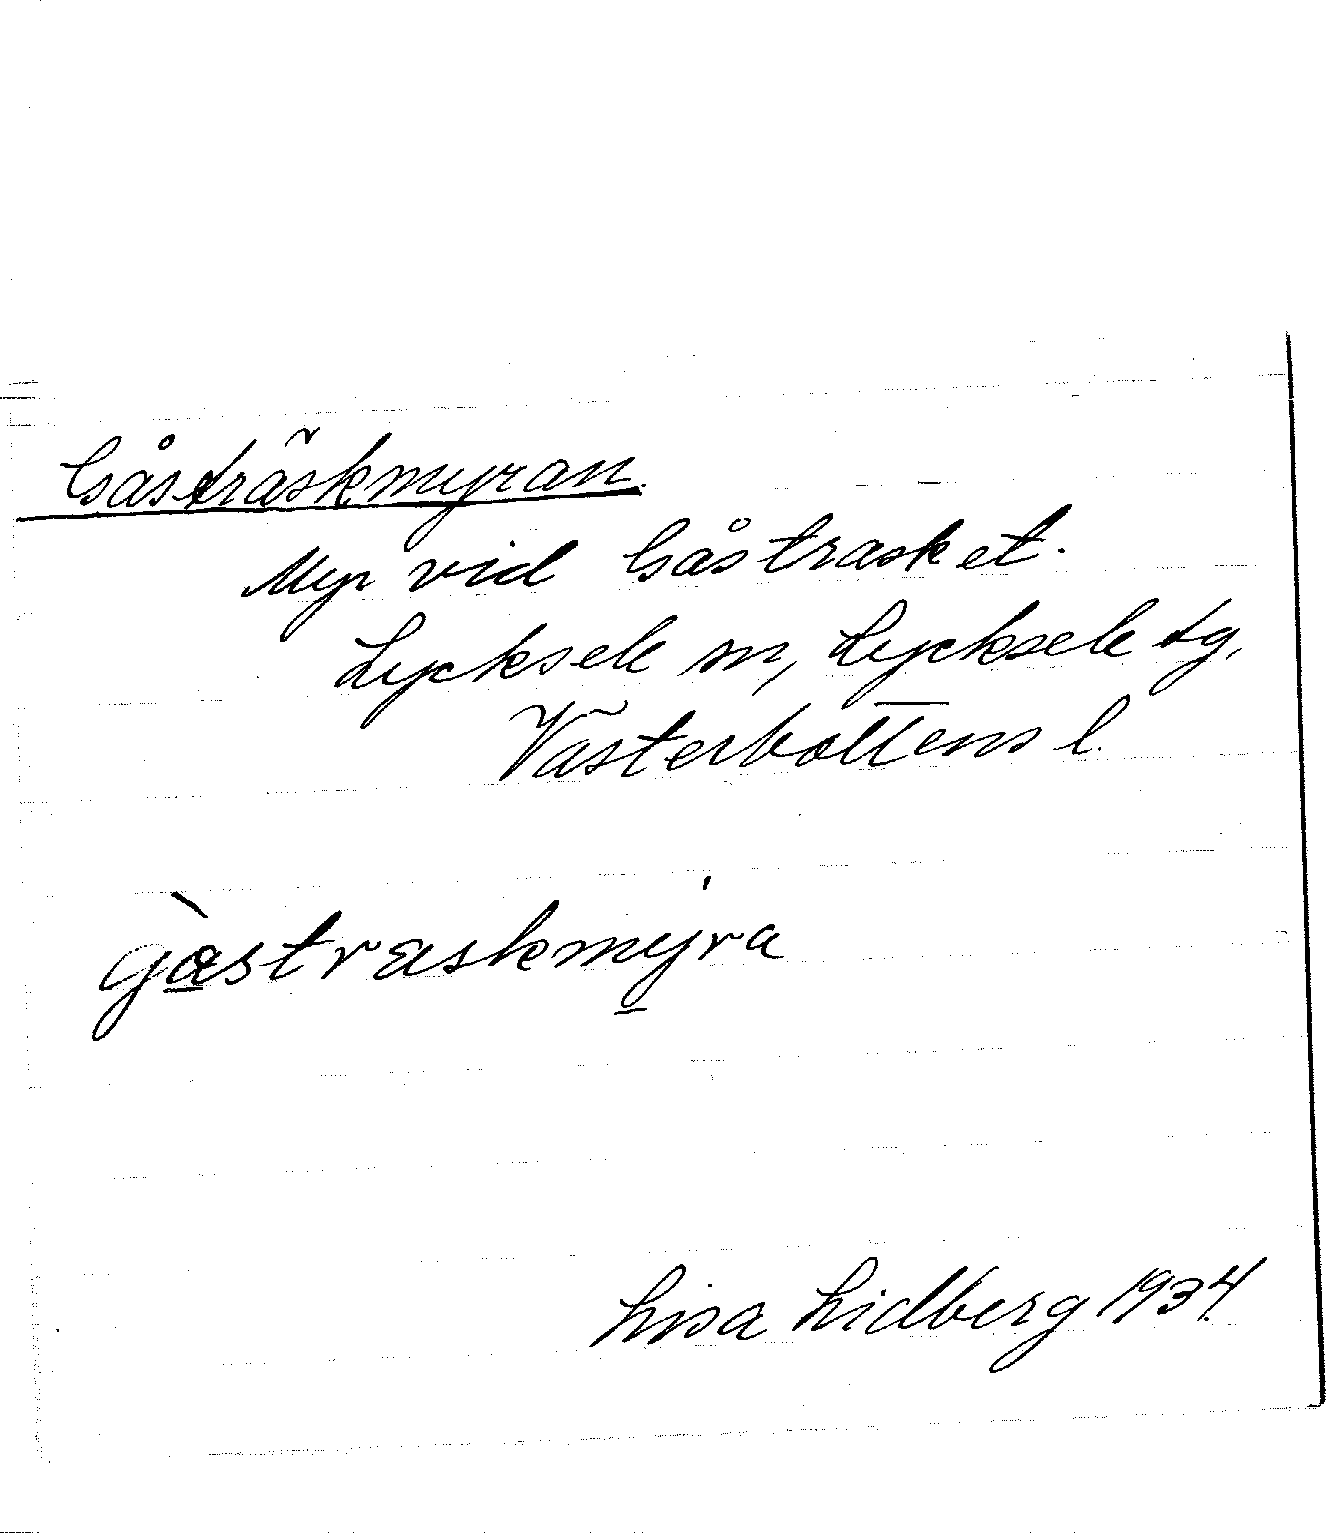 Gåsträskmyran.
Myr vid Gåstrasket.
Lycksele sn, Lycksele tg,
Västerbottens l.
gàstraskmyra
Lisa Lidberg 1934.